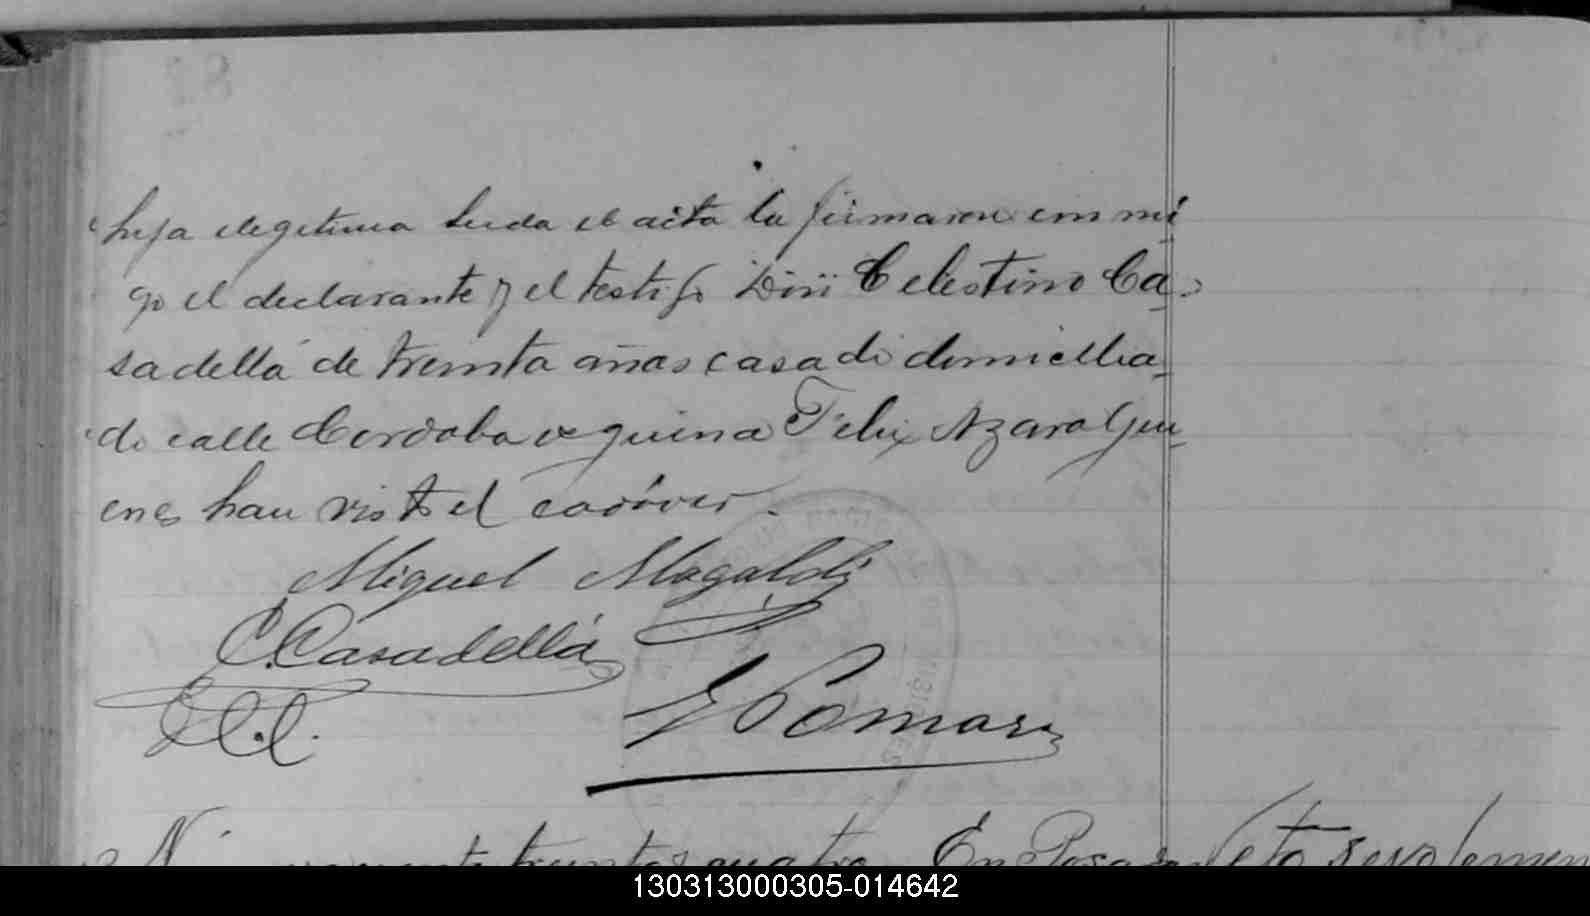 hija ilegitima leida el acta la firmaron conmi
go el declarante y el testigo Don Celestino Ca-
sadellá de treinta años casado domicilia-
do calle Cordoba esquina Felix Azara Qui-
enes han visto el cadáver.
Miguel Magaldi
C. Casadellá
E Pomar
treinta y cuatro En Rosario
130313000305-014642